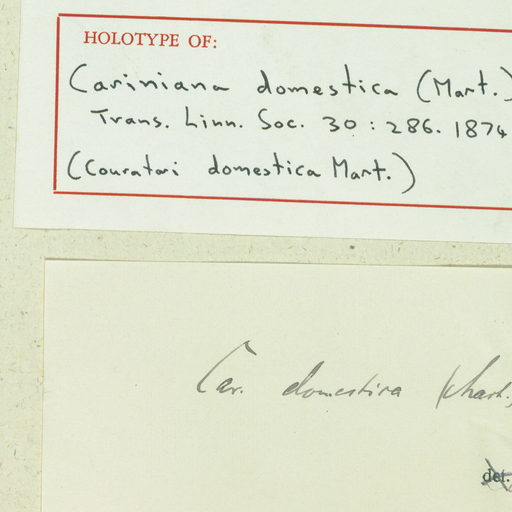 HOLOTYPE OF:
Cariniana domestica (Mart.)
Trans. Linn. Soc. 30 : 286. 1874
(Couratari domestica Mart.)
Car. domestica (Mart.)
det.